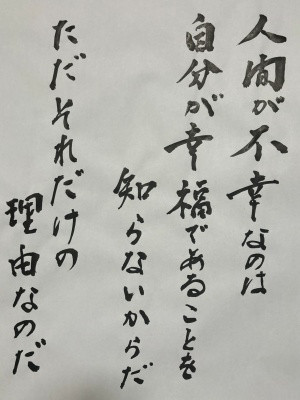 人間が不幸なのは
自分が幸福であることを
知らないからだ
ただそれだけの
理由なのだ